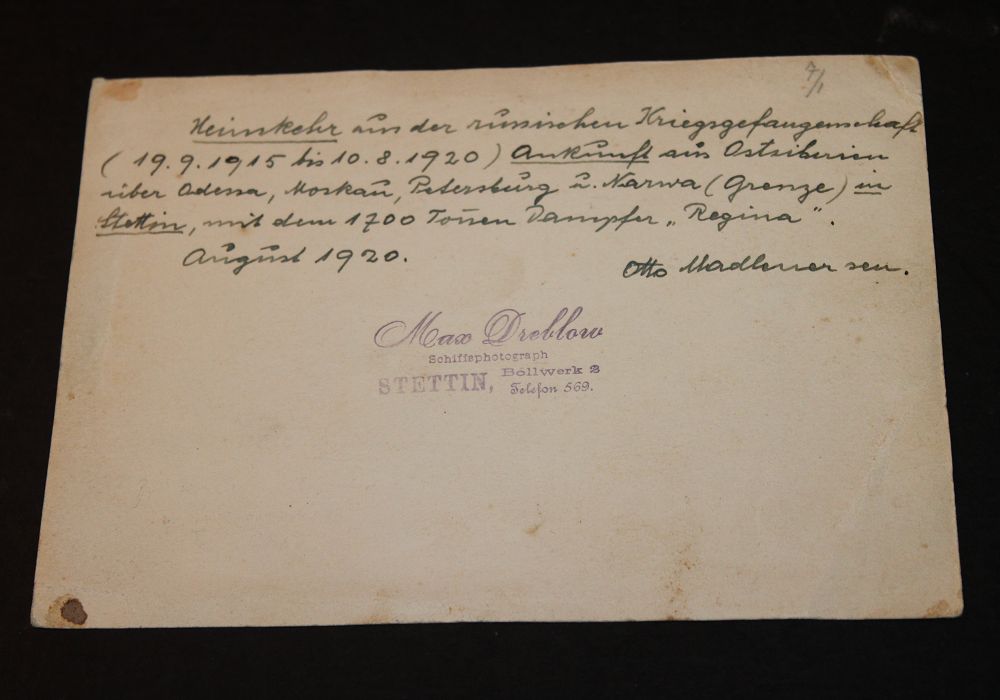 7/1
Heimkehr aus der russischen Kriegsgefangenschaft
(19.9.1915 bis 10.8.1920) Ankunft aus Ostsibirien
über Odessa, Moskau, Petersburg u. Narwa (Grenze) in
Stettin, mit dem 1700 Tonnen Dampfer „Regina".
August 1920.
Otto Madlener sen.
Max Dreblow
Schiffsphotograph
STETTIN, Bollwerk 2
Telefon 569.